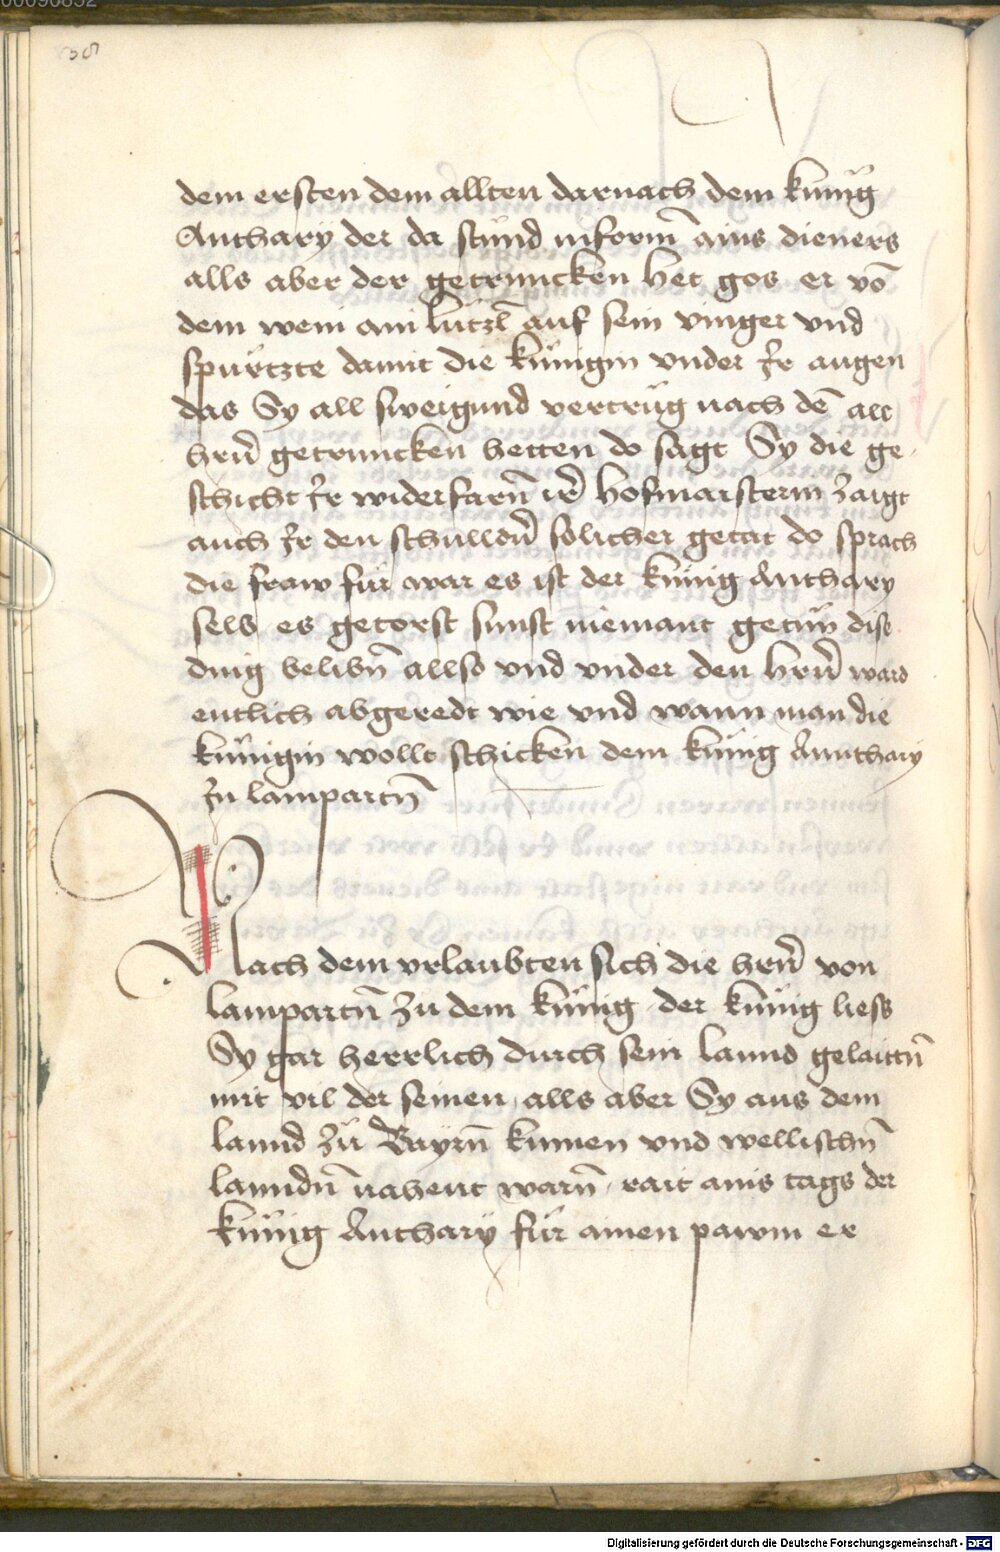 00090852
38
dem ersten dem allten darnach dem kunig
Anthary der da stund inform̄ ains dieners
alls aber der getrunncken het gos er vō
dem wein ain lutzl auf sein vinger vnd
spürtzte damit die künigin vnder Ir augen
das Sy all sweigund vertrug nach dē all
herrn̄ getruncken hetten do sagt Sy die ge-
schicht Ir widerfarn̄ irer hofmaisterin zaigt
auch Ir den schulldner solicher getat do sprach
die fraw für war es ist der künig Anthary
selb es getorst sunst niemant getun dise
ding belibn̄ allso vnd vnder den herrn̄ ward
entlich abgeredt wie vnd wann man die
künigin wollt schicken dem künig Annthary
zu lampartn̄
Nach dem vrlaubten sich die herrn̄ von
lampartn̄ zu dem künig der künig liess
Sy gar herrlich durch sein lannd gelaittn̄
mit vil der seinen, alls aber Sy aus dem
lannd zu Bayrn̄ kumen vnd wellischn̄
lanndn̄ nahent warn̄, rait ains tags der
künig Anthary für ainen pawm er
Digitalisierung gefördert durch die Deutsche Forschungsgemeinschaft - DFG